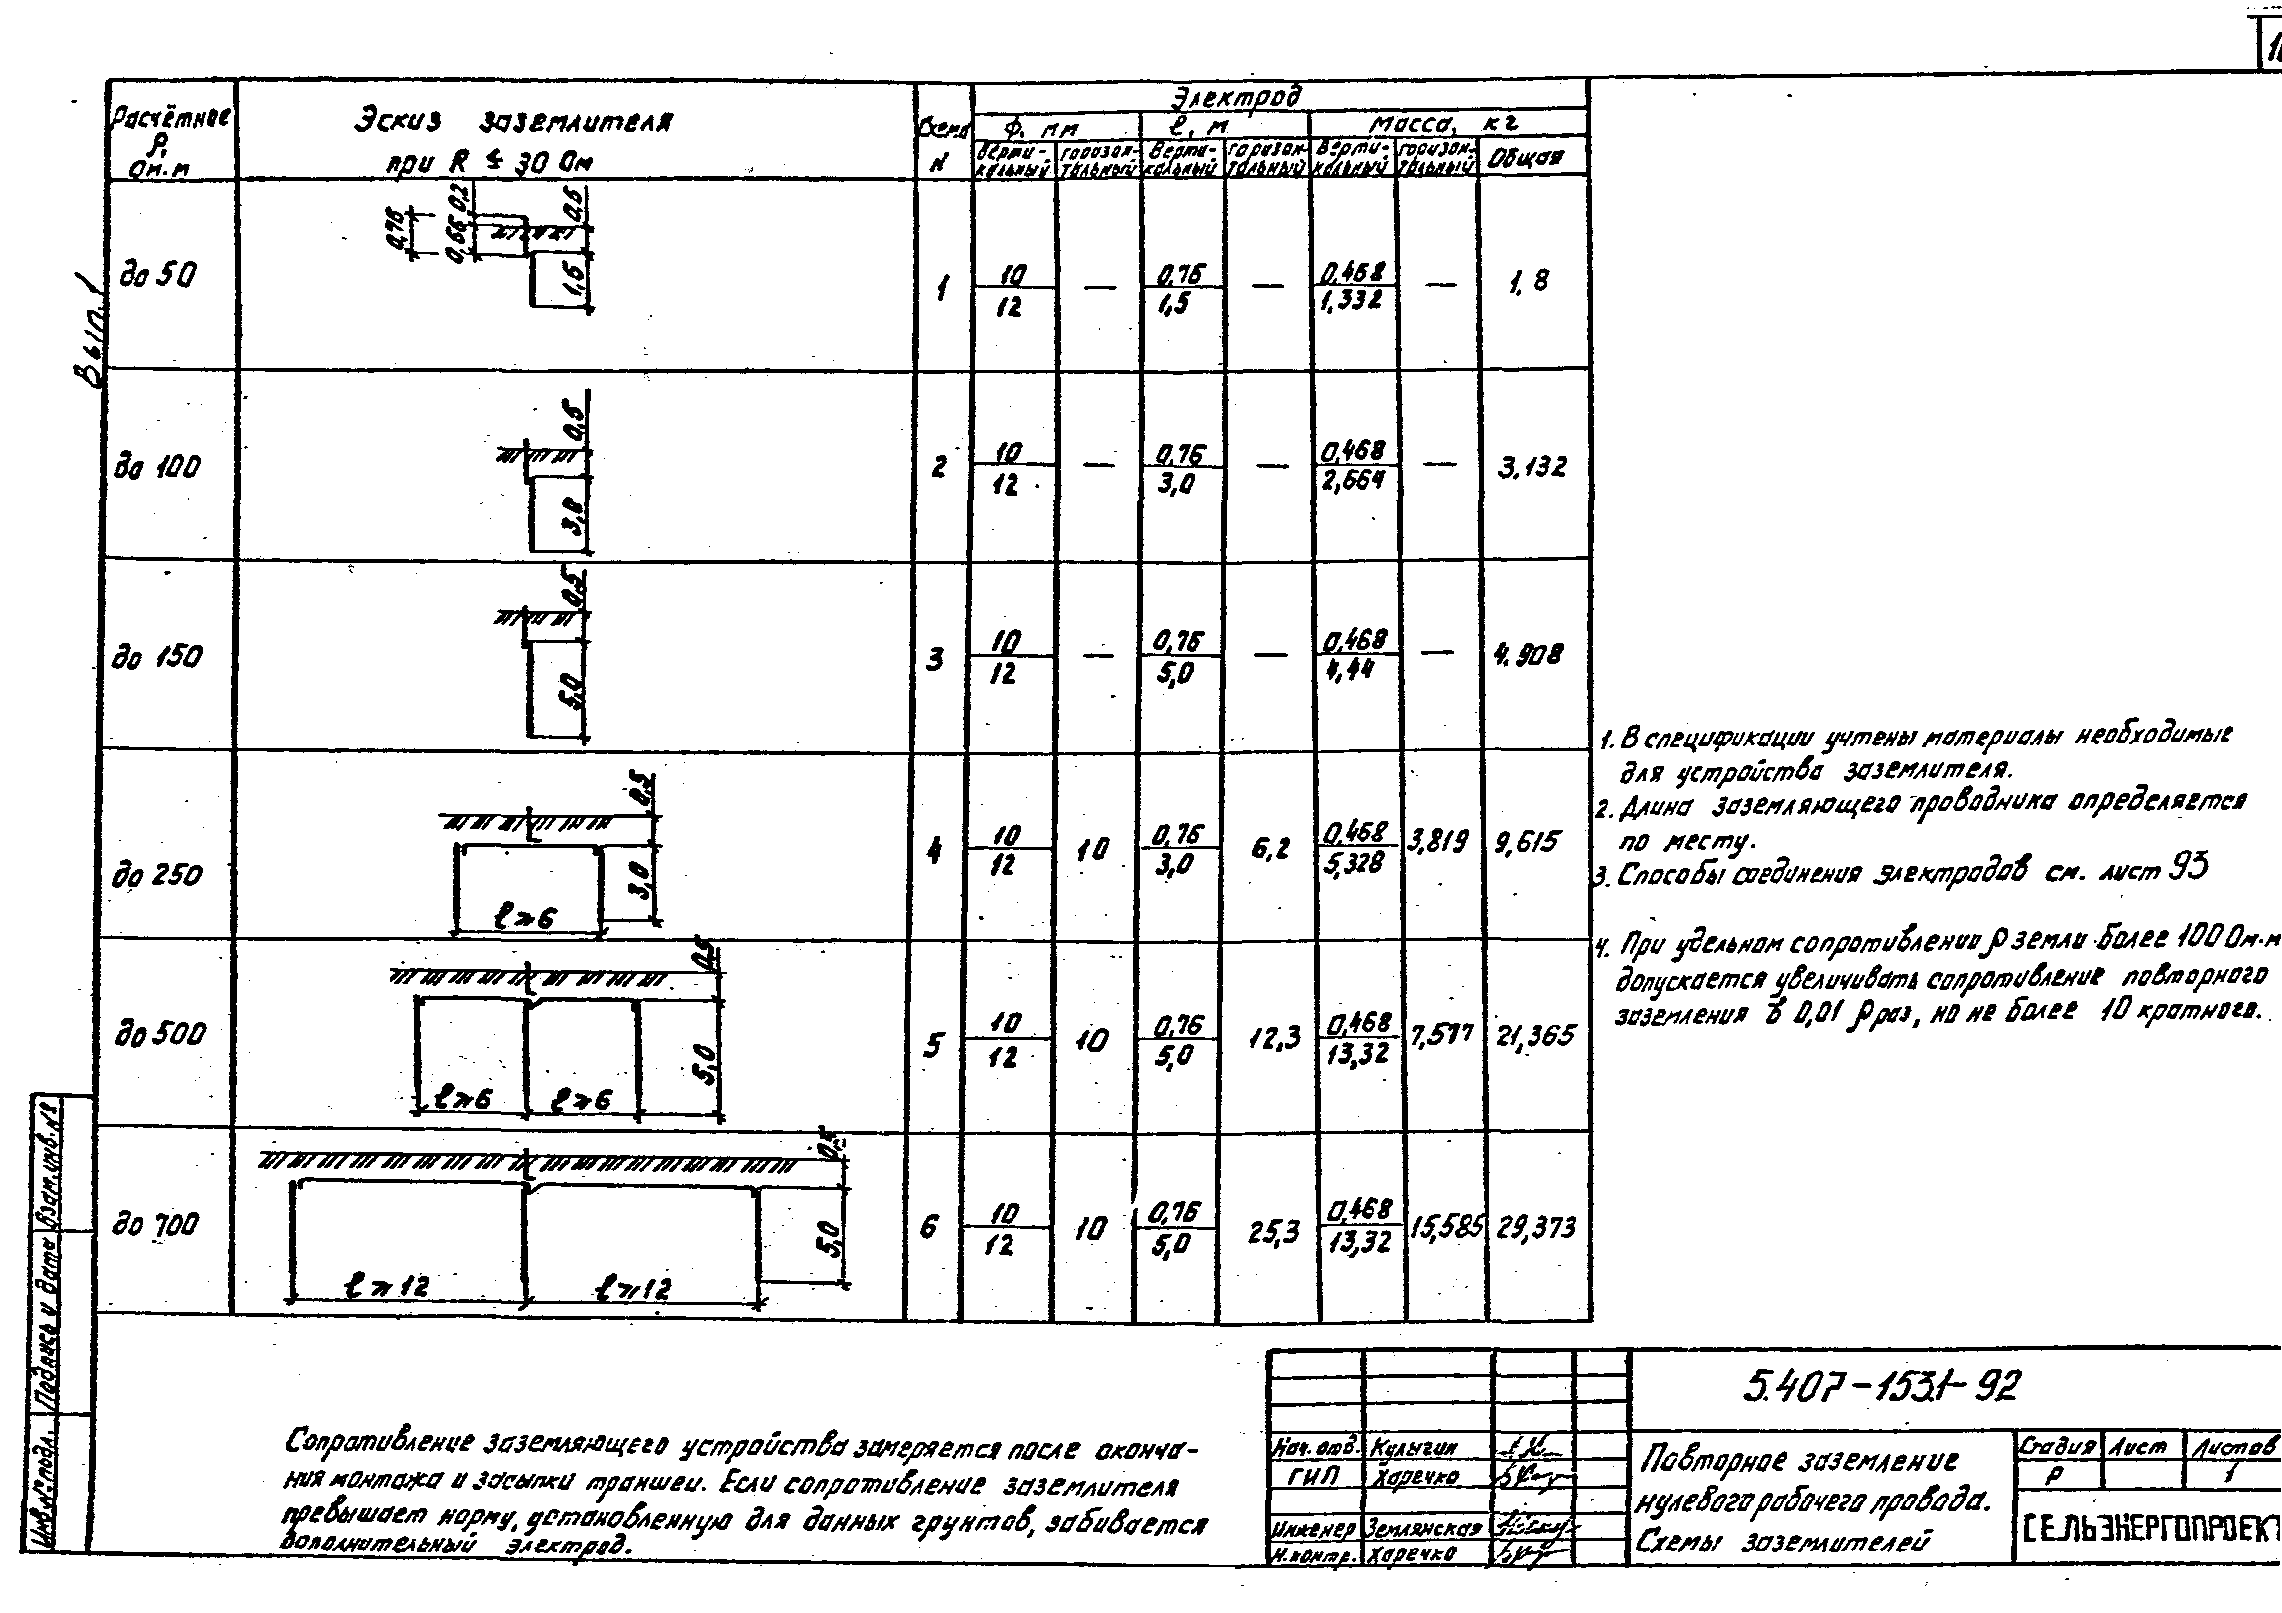 Вып. 1
Расчётное ρ, Ом.м
Эскиз заземлителя
при R ≤ 30 Ом
Схема N
Электрод
ф, мм
ℓ, м
Масса, кг
верти-кальный
горизон-тальный
верти-кальный
горизон-тальный
верти-кальный
горизон-тальный
Общая
до 50
0,76
0,66
0,2
0,5
1,5
1
10
12
—
0,76
1,5
—
0,468
1,332
—
1.8
до 100
0,5
3,0
2
10
12
—
0,76
3,0
—
0,468
2,664
—
3.132
до 150
0,5
5,0
3
10
12
—
0,76
5,0
—
0,468
4,44
—
4.908
до 250
0,5
3,0
ℓ≥6
4
10
12
10
0,76
3,0
6,2
0,468
5,328
3,819
9,615
до 500
0,5
5,0
ℓ≥6
ℓ≥6
5
10
12
10
0,76
5,0
12,3
0,468
13,32
7,577
21,365
до 700
0,5
5,0
ℓ≥12
ℓ≥12
6
10
12
10
0,76
5,0
25,3
0,468
13,32
15,585
29,373
1. В спецификации учтены материалы необходимые
для устройства заземлителя.
2. Длина заземляющего проводника определяется
по месту.
3. Способы соединения электродов см. лист 93
4. При удельном сопротивлении ρ земли более 100 Ом.м
допускается увеличивать сопротивление повторного
заземления в 0,01 ρ раз, но не более 10 кратного.
Сопротивление заземляющего устройства замеряется после оконча-
ния монтажа и засыпки траншеи. Если сопротивление заземлителя
превышает норму, установленную для данных грунтов, забивается
дополнительный электрод.
Взам.инв.№
Подпись и дата
Инв.№подл.
5.407-153.1-92
Нач. отд. Кулыгин
ГИП Харечко
Инженер Землянская
Н.контр. Харечко
Повторное заземление
нулевого рабочего провода.
Схемы заземлителей
Стадия Лист Листов
Р 1
СЕЛЬЭНЕРГОПРОЕКТ